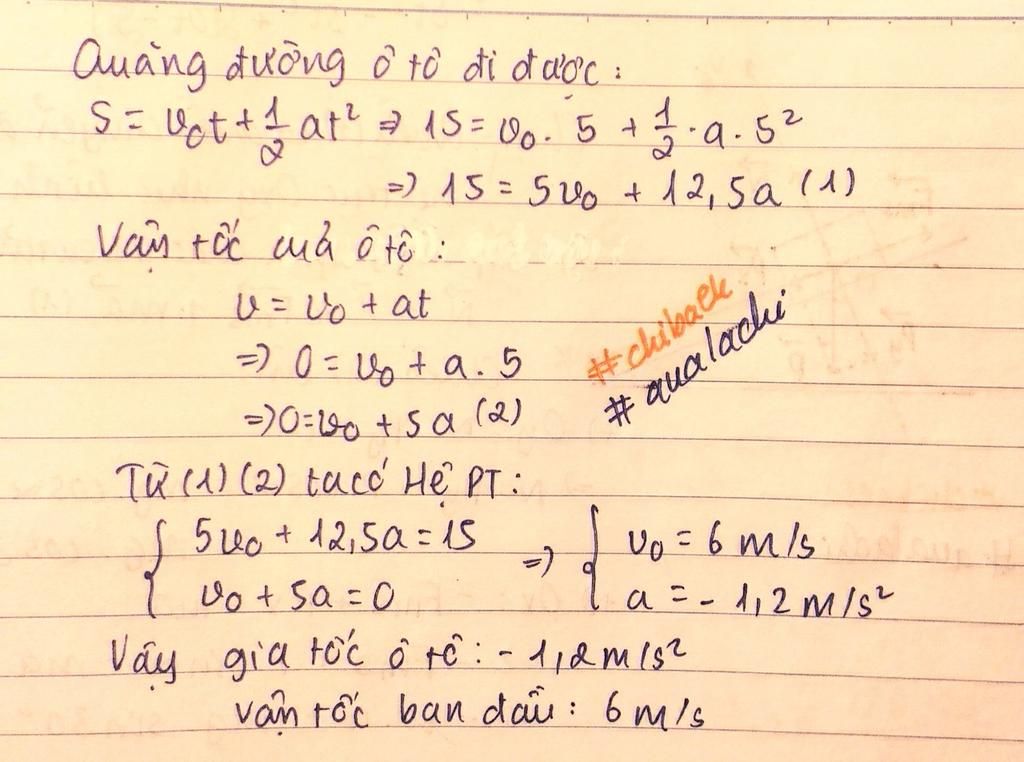 Quãng đường ô tô đi được:
S = v₀t + 1/2 at² => 15 = v₀. 5 + 1/2 . a . 5²
=> 15 = 5v₀ + 12,5a (1)
Vận tốc của ô tô:
v = v₀ + at
=> 0 = v₀ + a . 5
=> 0 = v₀ + 5a (2)
#chibaek
#aualachi
Từ (1) (2) ta có Hệ PT:
{ 5v₀ + 12,5a = 15 => { v₀ = 6 m/s
v₀ + 5a = 0 a = - 1,2 m/s²
Vậy gia tốc ô tô: - 1,2 m/s²
vận tốc ban đầu: 6 m/s